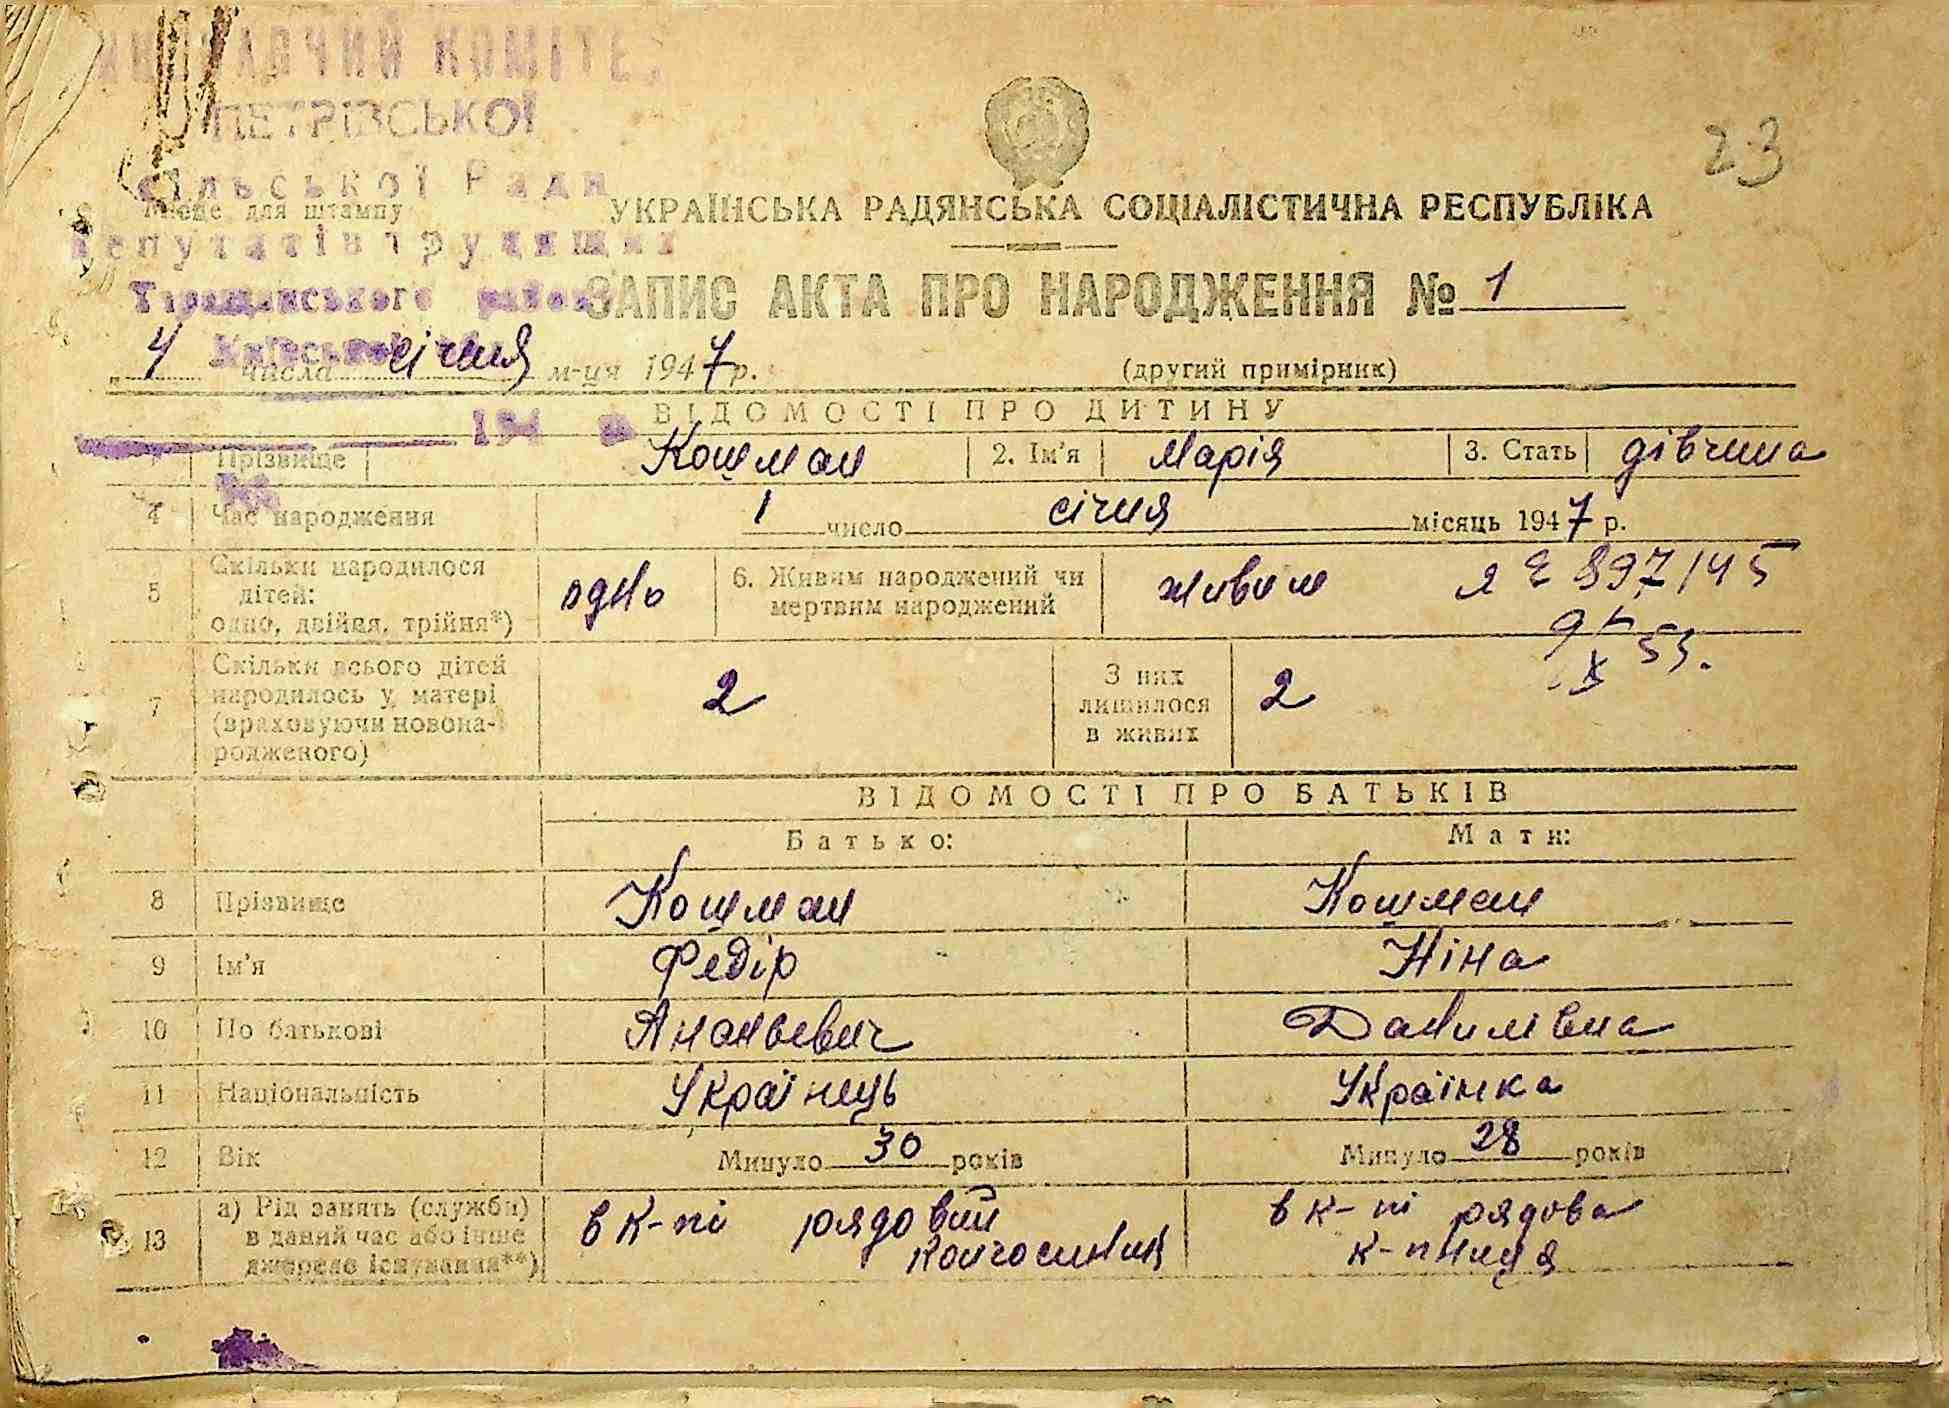 ВИКОНАВЧИЙ КОМІТЕТ
ПЕТРІВСЬКОЇ
сільської Ради
депутатів трудящих
Таращанського району
Київської
Місце для штампу
23
УКРАЇНСЬКА РАДЯНСЬКА СОЦІАЛІСТИЧНА РЕСПУБЛІКА
ЗАПИС АКТА ПРО НАРОДЖЕННЯ № 1
„ 4 числа січня м-ця 1947 р.
(другий примірник)
194
ВІДОМОСТІ ПРО ДИТИНУ
1 Прізвище Кошман 2. Ім'я Марія 3. Стать дівчина
4 Час народження 1 число січня місяць 1947 р.
5 Скільки народилося дітей: одно, двійня, трійня*) одно 6. Живим народжений чи мертвим народжений живим
897145
53.
7 Скільки всього дітей народилось у матері (враховуючи новонародженого) 2 З них лишилося в живих 2
ВІДОМОСТІ ПРО БАТЬКІВ
Батько: Мати:
8 Прізвище Кошман Кошман
9 Ім'я Федір Ніна
10 По батькові Ананьевич Данилівна
11 Національність Українець Українка
12 Вік Минуло 30 років Минуло 28 років
13 а) Рід занять (служби) в даний час або інше джерело існування**) в к-пі рядовий колгоспник в к-пі рядова к-пниця